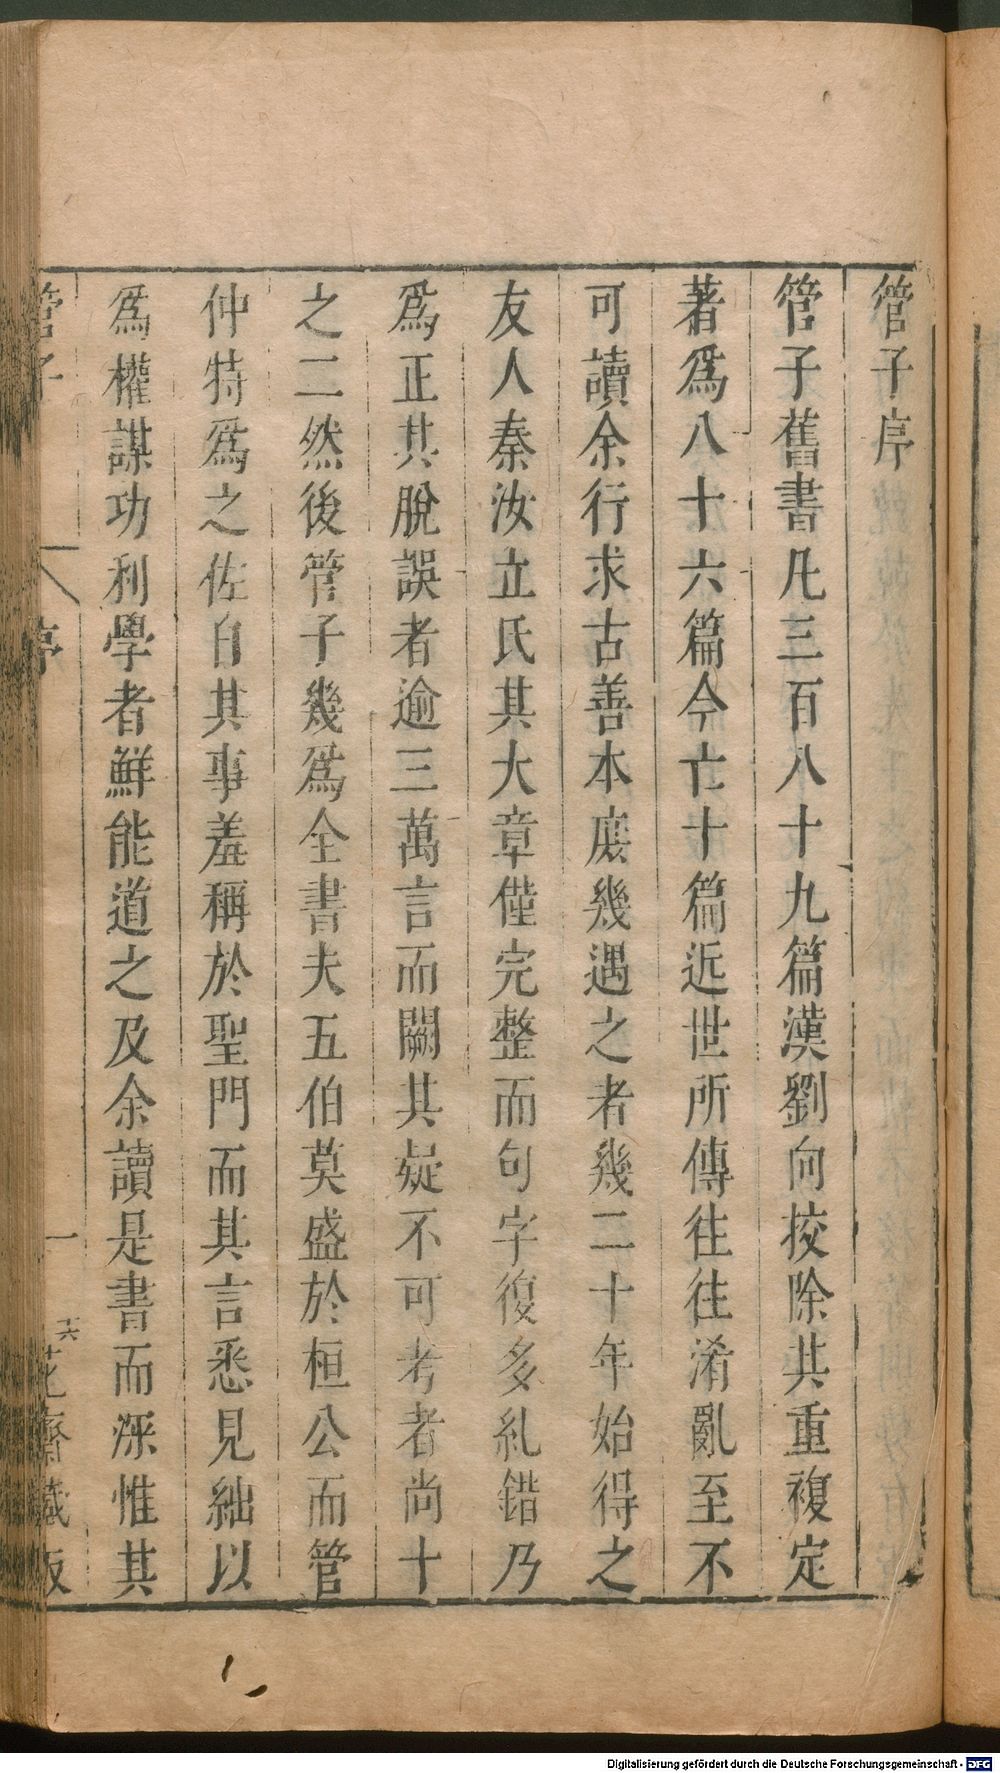 管子序
管子舊書凡三百八十九篇漢劉向挍除其重複定
著爲八十六篇今亡十篇近世所傳往往淆亂至不
可讀余行求古善本庻幾遇之者幾二十年始得之
友人秦汝立氏其大章僅完整而句字復多糺錯乃
爲正其脫誤者逾三萬言而闕其疑不可考者尚十
之二然後管子幾爲全書夫五伯莫盛於桓公而管
仲特爲之佐自其事羞稱於聖門而其言悉見絀以
爲權謀功利學者鮮能道之及余讀是書而深惟其
管子 序 一 花齋藏板
Digitalisierung gefördert durch die Deutsche Forschungsgemeinschaft - DFG